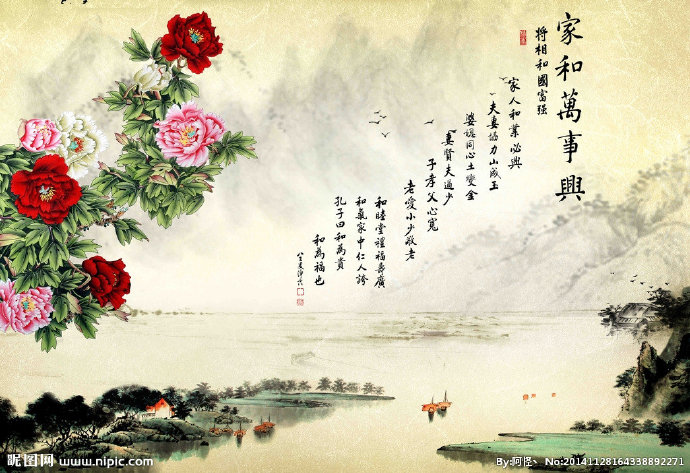 家和萬事興
将相和國富强
家人和業必興
夫妻協力山成玉
婆媳同心土變金
妻賢夫過少
子孝父心寬
老愛小少敬老
和睦堂裡福壽廣
和氣家中仁人誇
孔子曰和為貴
和為福也
昵图网 www.nipic.com
No:20141128164338892271